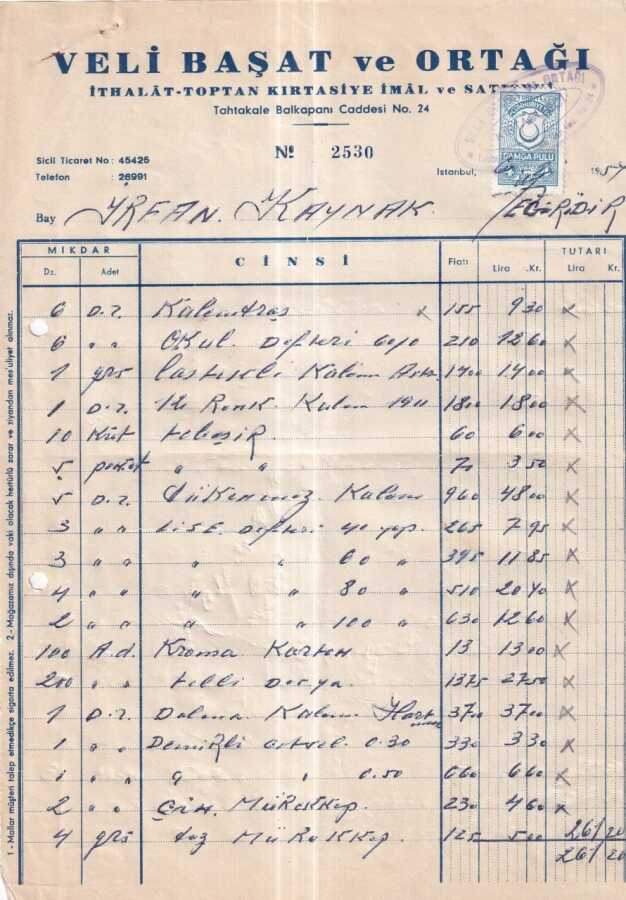 VELİ BAŞAT ve ORTAĞI
İTHALÂT-TOPTAN KIRTASİYE İMÂL ve SATIŞEVİ
Tahtakale Balkapanı Caddesi No. 24
Sicil Ticaret No : 45425
Nº 2530
DAMGA PULU
Telefon : 26991
Istanbul, 195
Bay İRFAN. KAYNAK. / EĞİRİDİR
MIKDAR CİNSİ Fiatı TUTARI
Dz. Adet Lira Kr. Lira Kr.
6 D.z. Kalemtraş 155 9 30
6 " " OKul Defteri 210 12 60
1 grs Lastikli Kalem 1400 14 00
1 D.z. 12 Renk Kalem 1800 18 00
10 Kut tebeşir 60 6 00
5 paket " " 70 3 50
5 D.z. tükenmez Kalem 960 48 00
3 " " LiSE Defteri 40 yap. 265 7 95
3 " " " " 60 " 395 11 85
4 " " " " 80 " 510 20 40
2 " " " " 100 " 630 12 60
100 A.d. Kroma Karton 13 13 00
200 " " telli Dosya 1375 27 50
1 D.z. Dolma Kalem 370 37 00
1 " " DemiRli 0.30 330 3 30
1 " " " " 0.50 660 6 60
2 " " Çin MüReKKep. 230 4 60
4 grs toz MüReKKep. 125 5 00 261 20
261 20
1 - Mallar müşteri talep etmedikçe sigorta edilmez. 2 - Mağazamız dışında vaki olacak hertürlü zarar ve ziyandan mes'uliyet alınmaz.